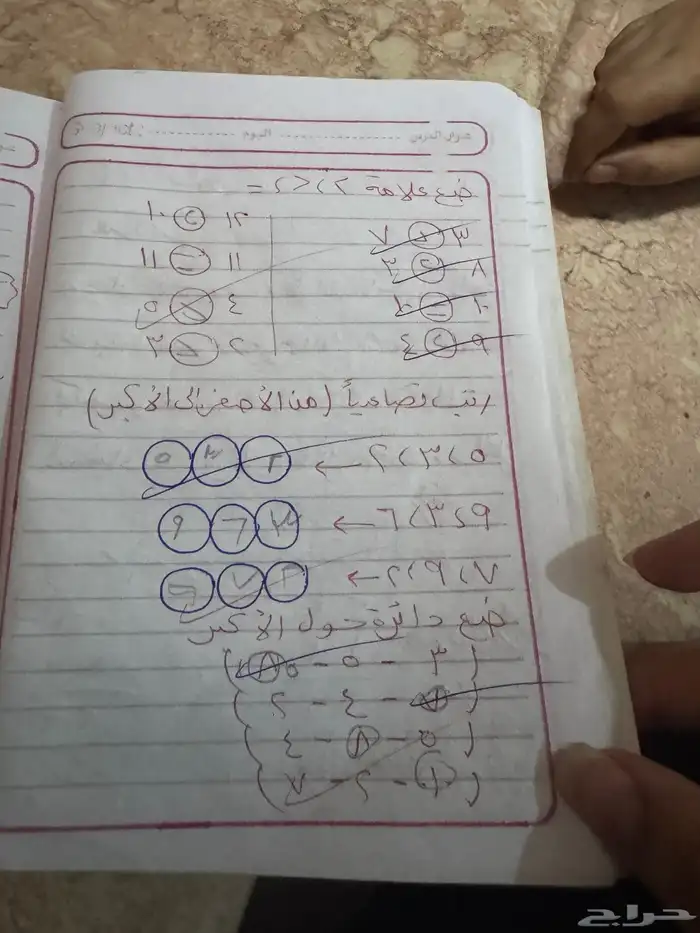 عنوان الدرس .................. اليوم ..................
ضع علامة > ، < ، =
٣ < ٧
١٢ > ١٠
٨ > ٣
١١ = ١١
=
٤ < ٥
٩ > ٤
٢ < ٣
رتب تصاعدياً (من الأصغر إلى الأكبر)
٥ ، ٣ ، ٢ ← ٢ ٣ ٥
٩ ، ٣ ، ٦ ← ٣ ٦ ٩
٧ ، ٩ ، ٢ ← ٢ ٧ ٩
ضع دائرة حول الأكبر
( ٣ - ٥ - ٨ )
( - ٤ - ٢ )
( ٥ - ٨ - ٤ )
( - ٢ - )
حراج